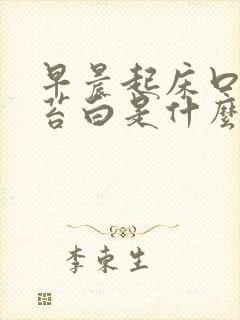 早晨起床口
苔白是什麼
李東生